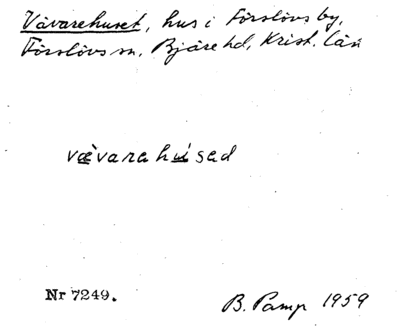 Vävarehuset, hus i Förslövs by,
Förslövs sn, Bjäre hd, Krist. län
vævarahúsad
Nr 7249.
B. Pamp 1959